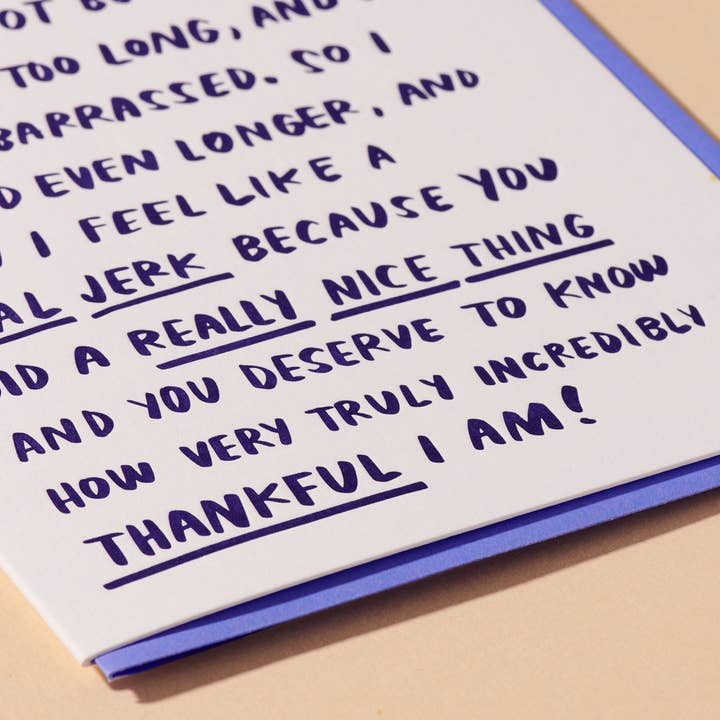 TOO LONG, AND
SO I
EVEN LONGER, AND
I FEEL LIKE A
JERK BECAUSE YOU
A REALLY NICE THING
AND YOU DESERVE TO KNOW
HOW VERY TRULY INCREDIBLY
THANKFUL I AM!